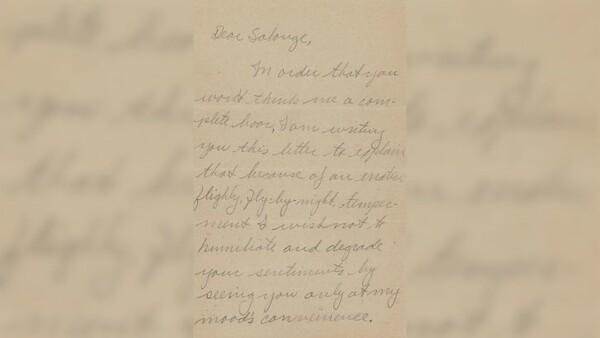 Dear Solange,
In order that you
won't think me a com-
plete boor, I am writing
you this letter to explain
that because of an erratic
flighty, fly-by-night, temper-
ment I wish not to
humiliate and degrade
your sentiments by
seeing you only at my
mood's convenience.